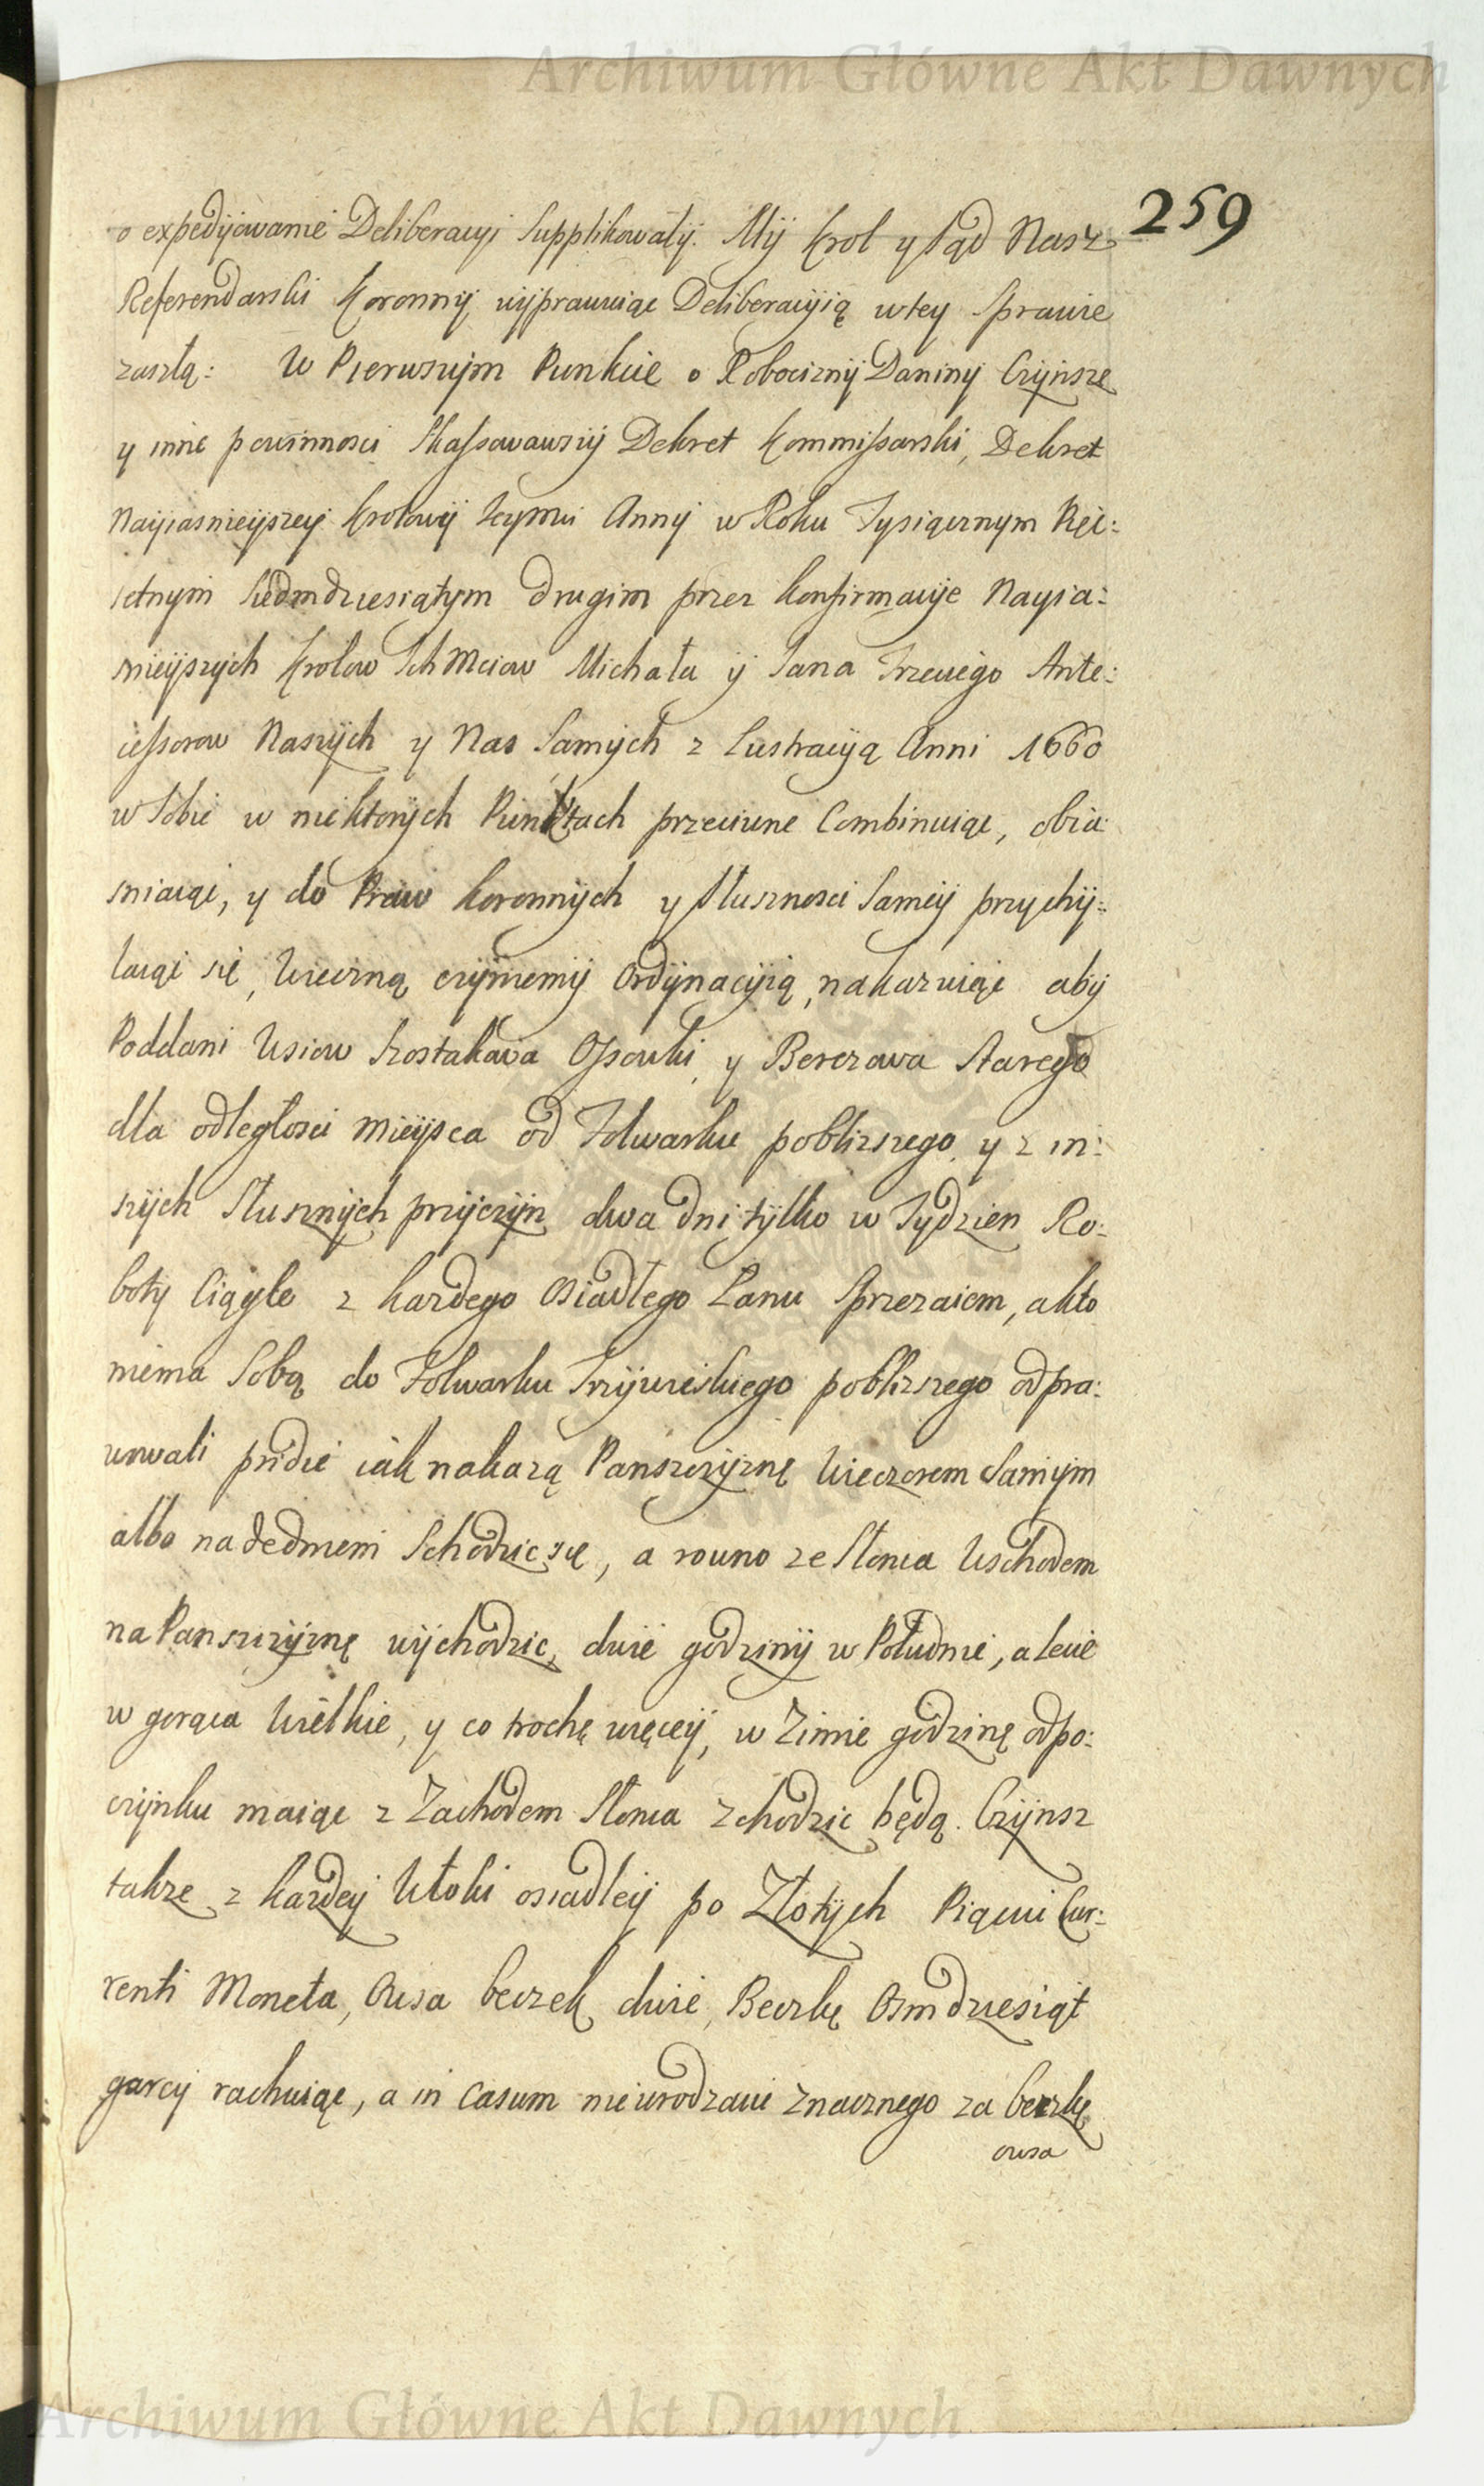 Archiwum Główne Akt Dawnych
259
o expedyiowanie Deliberacyi Supplikowały. My Krol y Sąd Nasz
Referendarski Koronny wyprawuiąc Deliberacyią w tey Sprawie
zaszłą: W Pierwszym Punkcie o Robocizny Daniny Czynsze
y inne powinnosci Skassowawszy Dekret Kommissarski, Dekret
Nayiasnieyszey Krolowy Ieymci Anny w Roku Tysiącznym Pięć:
setnym Siedmdziesiątym drugim przez konfirmacyie Nayia:
snieyszych Krolow Ich Mciow Michała y Iana Trzeciego Ante:
cessorow Naszych y Nas Samych z Lustracyą Anni 1660
w Sobie w niektorych Punktach przeciwne Combinuiąc, obia:
sniaiąc, y do Praw koronnych y Słusznosci Samey przychy:
laiąc się, Wieczną czyniemy Ordynacyią, nakazuiąc aby
Poddani Wsiow Szostakowa Ossowki, y Berezowa Starego
dla odległosci mieysca od Folwarku poblizszego, y z in:
szych Słusznych przyczyn dwa dni tylko w Tydzien Ro:
boty Ciągłe z kazdego Osiadłego Łanu Sprzezaiem, a kto
niema Sobą do Folwarku Trzywieskiego poblizszego odpra:
wowali pridie iak nakazą Panszczyznę Wieczorem Samym
albo nadedniem Schodzic się, a rowno ze Słonca Wschodem
na Panszczyznę wychodzic, dwie godziny w Południe, a lecie
w gorąca Wielkie, y co trochę więcey, w Zimie godzinę odpo:
czynku maiąc z Zachodem Słonca zchodzic będą. Czynsz
takze z kazdey Włoki osiadley po Złotych Piąciu Cur:
renti Moneta, Owsa beczek dwie, Beczkę Osmdziesiąt
garcy rachuiąc, a in casum nieurodzaiu znacznego za beczkę
owsa
Archiwum Główne Akt Dawnych